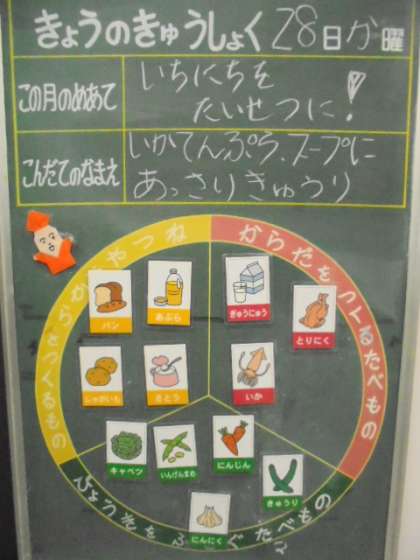 きょうのきゅうしょく 28日か曜
この月のめあて
いちにちを
たいせつに!
こんだてのなまえ
いかてんぷら、スープに
あっさりきゅうり
ねつやちからをつくるもの
からだをつくるたべもの
パン
あぶら
ぎゅうにゅう
とりにく
じゃがいも
さとう
いか
キャベツ
いんげんまめ
にんじん
きゅうり
にんにく
びょうきをふせぐたべもの